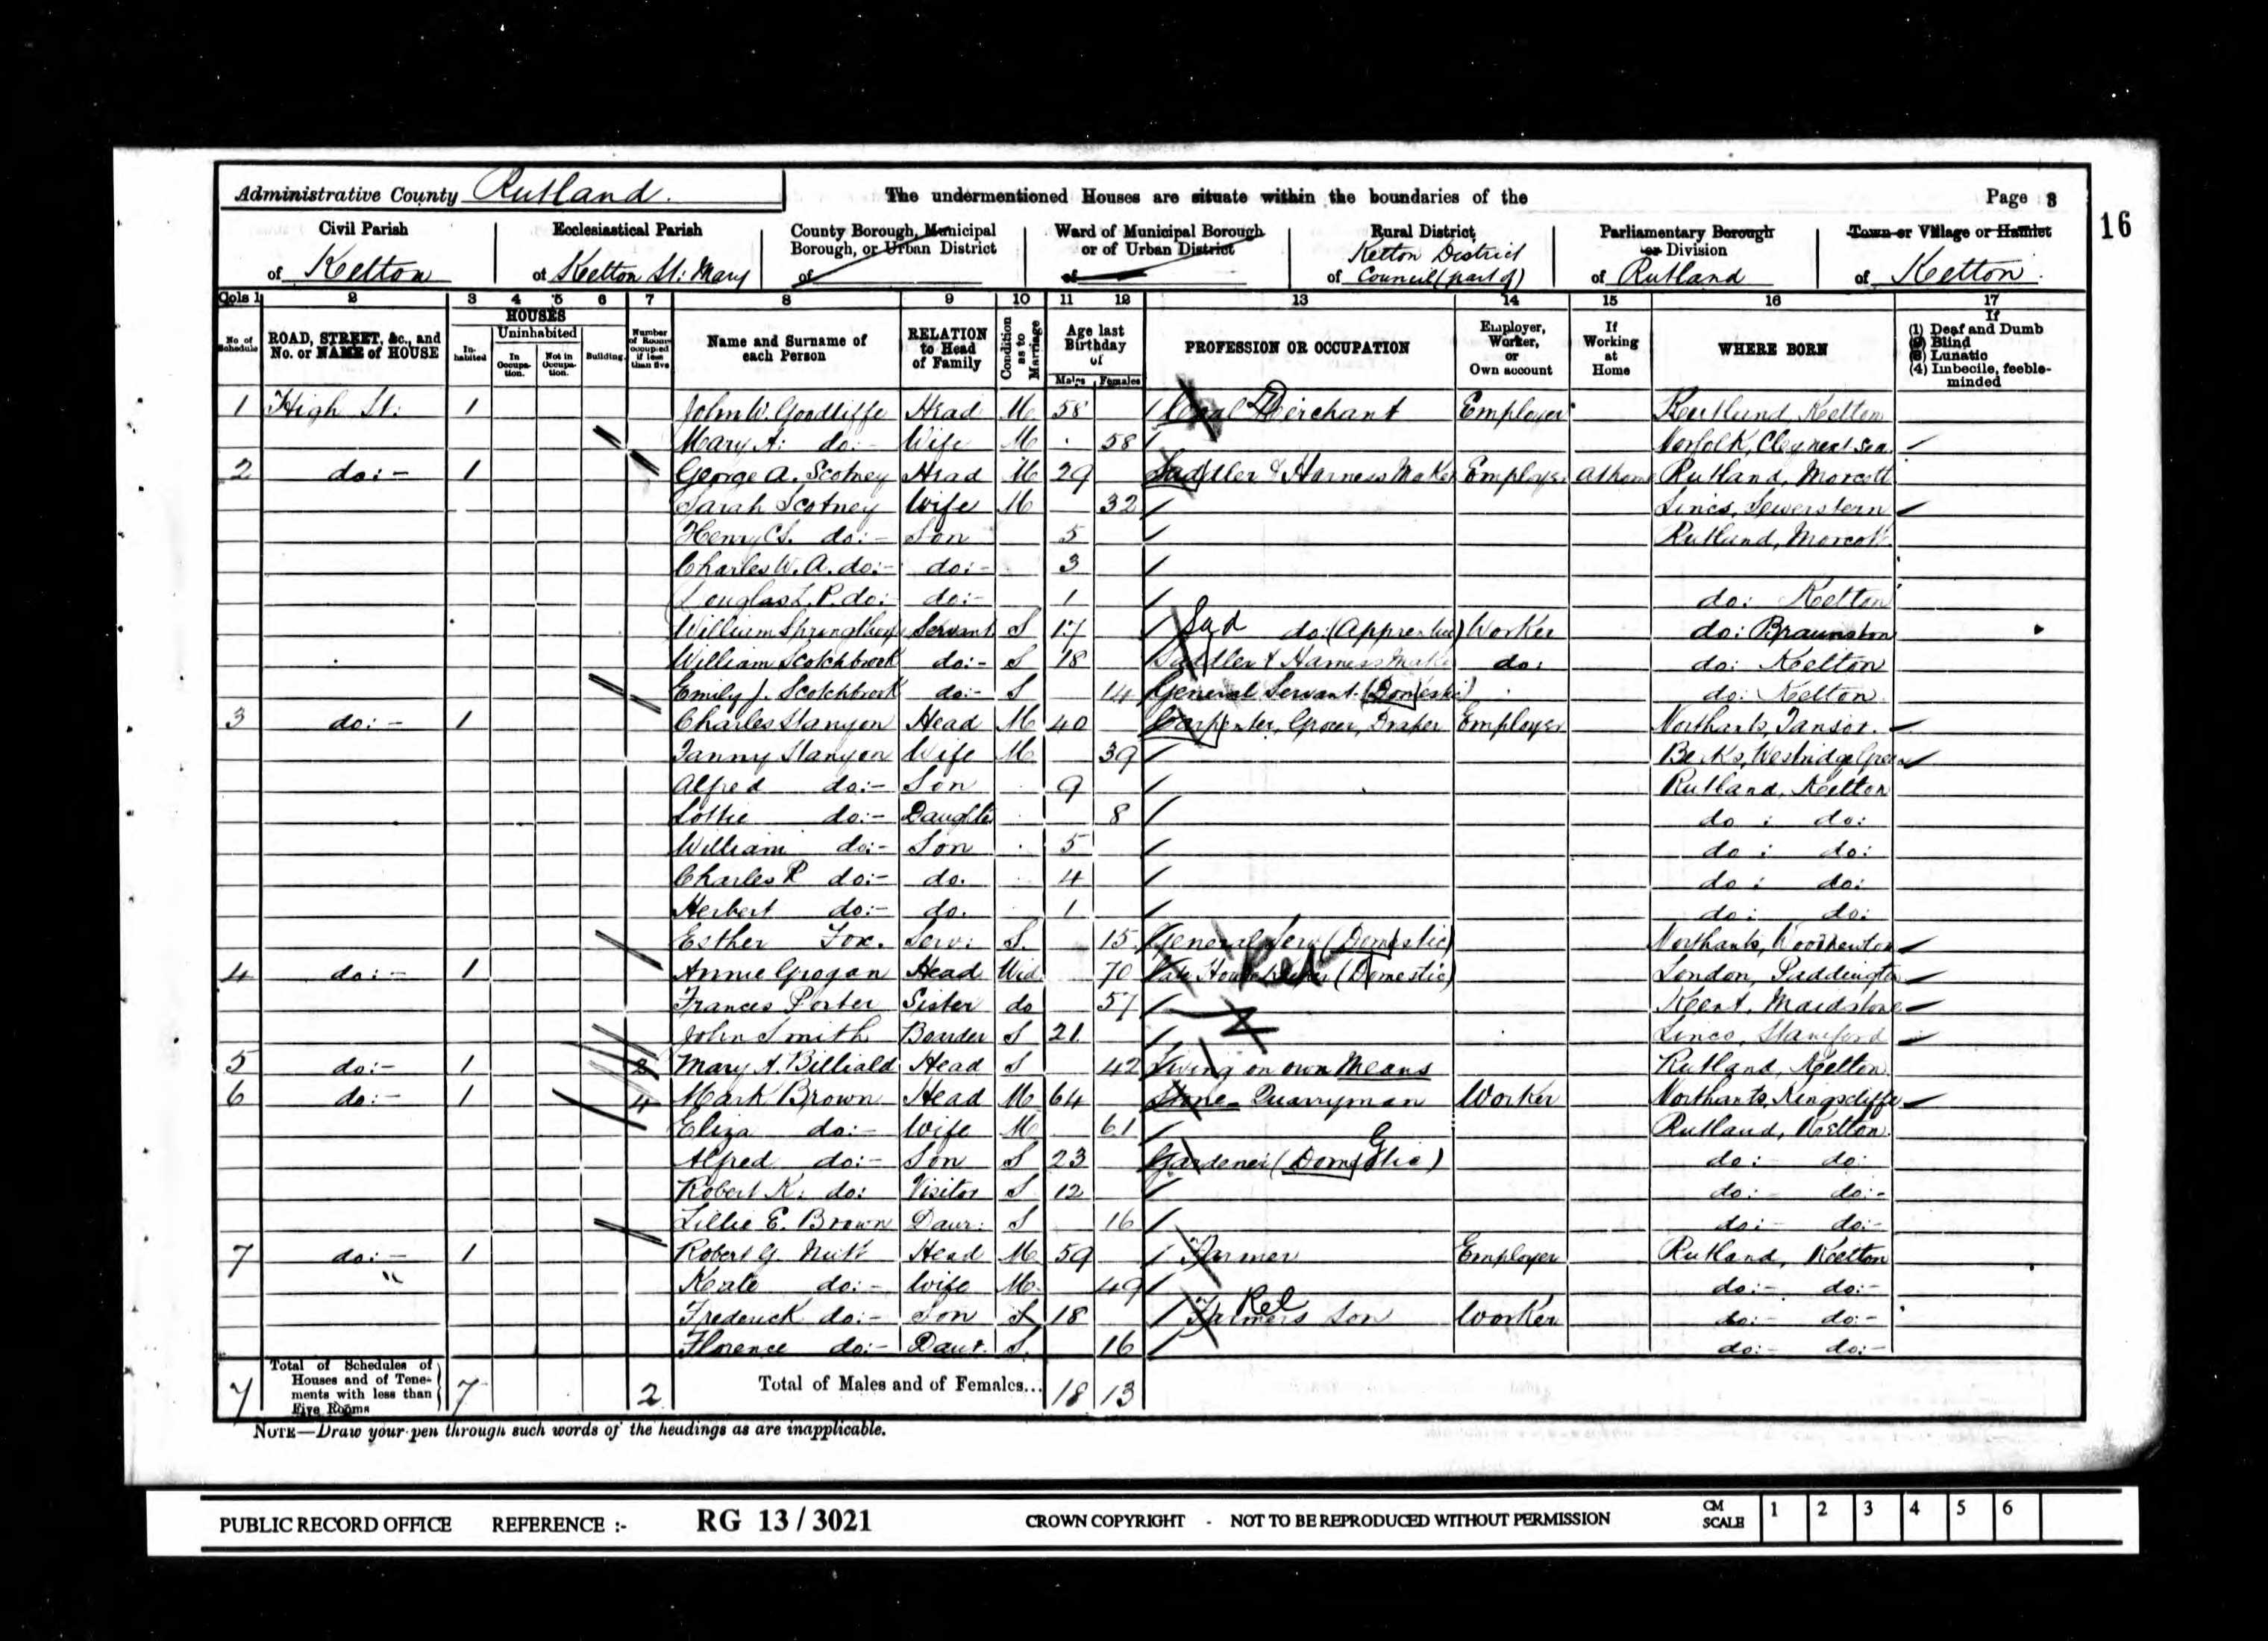 Administrative County Rutland.
The undermentioned Houses are situate within the boundaries of the
Page 8
16
Civil Parish
of Ketton
Ecclesiastical Parish
of Ketton St: Mary
County Borough, Municipal
Borough, or Urban District
of
Ward of Municipal Borough
or of Urban District
of
Rural District
Ketton District
of Council (part of)
Parliamentary Borough
or Division
of Rutland
Town or Village or Hamlet
of Ketton.
Cols 1 2 3 4 5 6 7 8 9 10 11 12 13 14 15 16 17
No of Schedule
ROAD, STREET, &c., and
No. or NAME of HOUSE
HOUSES
In-habited
Uninhabited
In Occupa-tion.
Not in Occupa-tion.
Building.
Number of Rooms occupied if less than five
Name and Surname of
each Person
RELATION
to Head
of Family
Condition as to Marriage
Age last
Birthday
of
Males Females
PROFESSION OR OCCUPATION
Employer,
Worker,
or
Own account
If
Working
at
Home
WHERE BORN
If
(1) Deaf and Dumb
(2) Blind
(3) Lunatic
(4) Imbecile, feeble-
minded
1 High St: 1 John W. Goodliffe Head M 58 Coal Merchant Employer Rutland, Ketton
Mary A: do:- Wife M 58 Norfolk, Cley next Sea
2 do:- 1 George A. Scotney Head M 29 Saddler & Harness Maker Employer At home Rutland, Morcott
Sarah Scotney Wife M 32 Lincs, Sewerstern
Henry do:- Son 5 Rutland, Morcott
Charles W. A. do:- do:- 3
Douglas L. P. do:- do:- 1 do: Ketton
William Servant S 17 Sad do: (Apprentice) Worker do: Braunston
William Scotchbrook do:- S 18 Saddler & Harness Maker do: do: Ketton
Emily J. Scotchbrook do:- S 14 General Servant (Domestic) do: Ketton
3 do:- 1 Charles Stanyon Head M 40 Carpenter, Grocer, Draper Employer Northants, Tansor.
Fanny Stanyon Wife M 39 Berks, Westridge Green
Alfred do:- Son 9 Rutland, Ketton
Lottie do:- Daughter 8 do: do:
William do:- Son 5 do: do:
Charles R do:- do. 4 do: do:
Herbert do:- do. 1 do: do:
Esther Fox. Serv: S. 15 General Serv (Domestic) Northants, Woodnewton
4 do:- 1 Annie Grogan Head Wid 70 Late Housekeeper (Domestic) Ret London, Paddington
Frances Porter Sister do 57 Kent, Maidstone
John Smith Boarder S 21 Lincs, Stamford
5 do:- 1 2 Mary A. Billiald Head S 42 Living on own Means Rutland, Ketton
6 do:- 1 4 Mark Brown Head M 64 Stone Quarryman Worker Northants, Kingscliffe
Eliza do:- Wife M 61 Rutland, Ketton.
Alfred do:- Son S 23 Gardener (Domestic) G do: do:
Robert K: do: Visitor S 12 do:- do:-
Lillie E. Brown Daur: S 16 do:- do:-
7 do:- 1 Robert G. Nutt Head M 59 Farmer Employer Rutland, Ketton
Kate do:- Wife M. 49 do:- do:-
Frederick do:- Son S 18 Farmers Son Rel Worker do:- do:-
Florence do:- Daur. S. 16 do:- do:-
7 Total of Schedules of
Houses and of Tene-
ments with less than
Five Rooms 7 2 Total of Males and of Females... 18 13
NOTE—Draw your pen through such words of the headings as are inapplicable.
PUBLIC RECORD OFFICE REFERENCE :- RG 13 / 3021 CROWN COPYRIGHT - NOT TO BE REPRODUCED WITHOUT PERMISSION
CM
SCALE 1 2 3 4 5 6